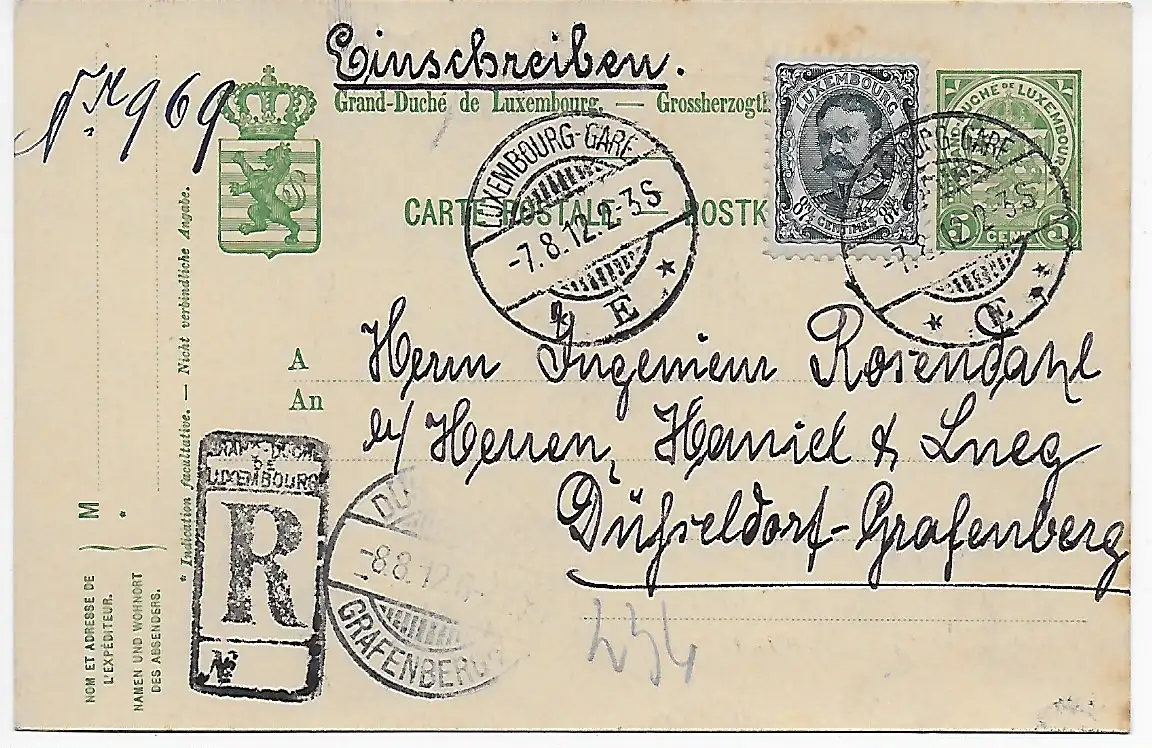 Einschreiben.
Nr. 969
Grand-Duché de Luxembourg. — Grossherzogt
LUXEMBOURG
87½ 87½
CENTIMES
DUCHÉ DE LUXEMBOURG
5 CENT 5
CARTE POSTALE — POSTK
LUXEMBOURG-GARE
-7.8.12.2-3S
* E *
GARE
2-3S
* E *
A
An
Herrn Ingenieur Rosendahl
Herren, Haniel & Lueg
Düsseldorf-Grafenberg
GRAND-DUCHÉ
DE
LUXEMBOURG
R
No
DÜ
-8.8.12.
GRAFENBERG
234
M *
* Indication facultative. — Nicht verbindliche Angabe.
NOM ET ADRESSE DE
L'EXPÉDITEUR.
NAMEN UND WOHNORT
DES ABSENDERS.